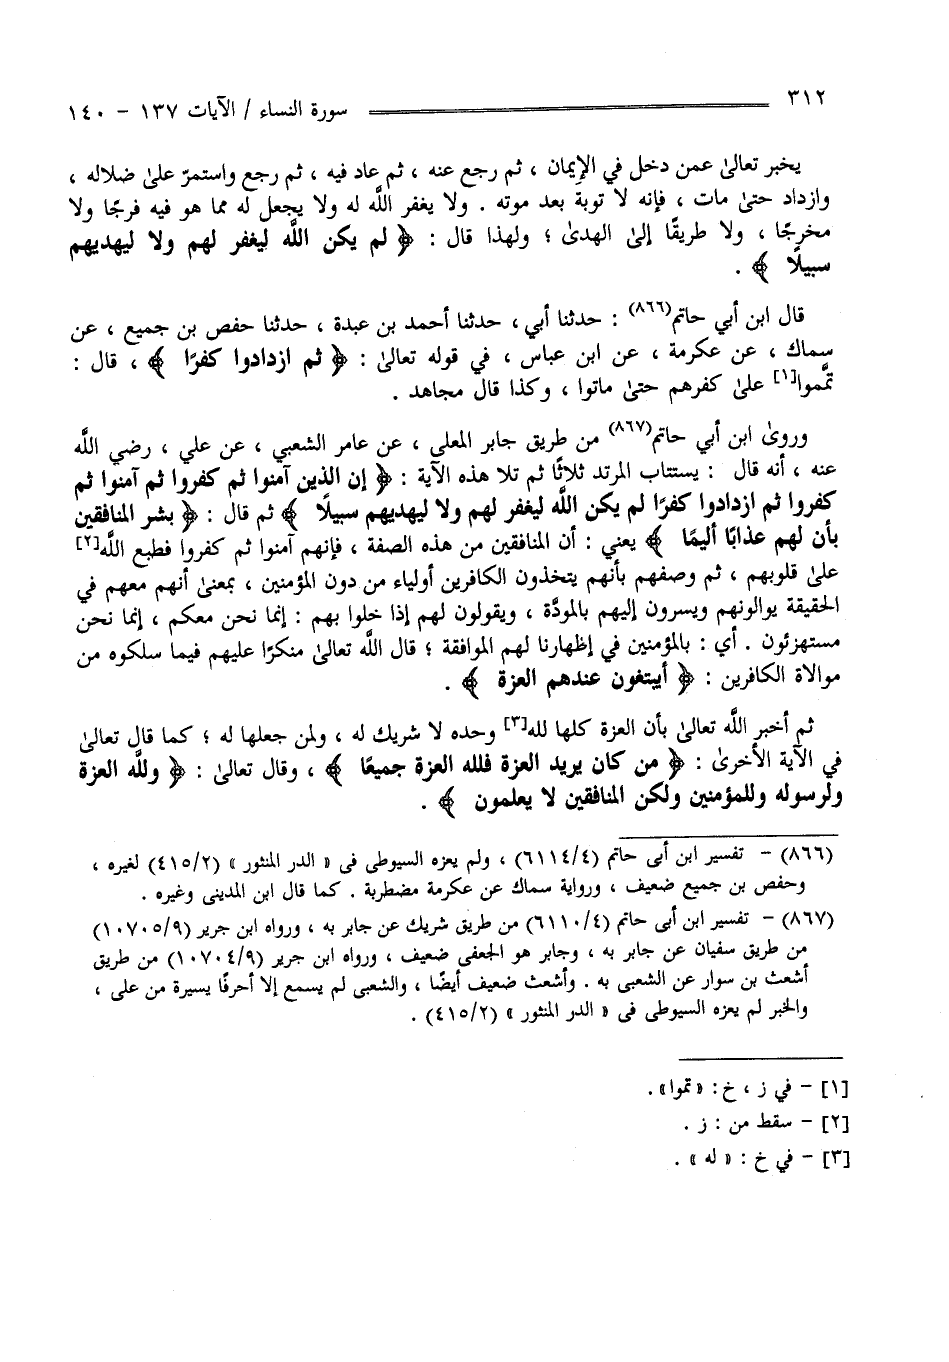 ٣١٢ سورة النساء / الآيات ١٣٧ – ١٤٠
يخبر تعالىٰ عمن دخل في الإيمان ، ثم رجع عنه ، ثم عاد فيه ، ثم رجع واستمرّ علىٰ ضلاله ،
وازداد حتىٰ مات ، فإنه لا توبة بعد موته . ولا يغفر اللَّه له ولا يجعل له مما هو فيه فرجًا ولا
مخرجًا ، ولا طريقًا إلىٰ الهدىٰ ؛ ولهذا قال : ﴿ لم يكن اللَّه ليغفر لهم ولا ليهديهم
سبيلًا ﴾ .
قال ابن أبي حاتم(٨٦٦) : حدثنا أبي ، حدثنا أحمد بن عبدة ، حدثنا حفص بن جميع ، عن
سماك ، عن عكرمة ، عن ابن عباس ، في قوله تعالىٰ : ﴿ ثم ازدادوا كفرًا ﴾ ، قال :
تمَّموا[١] علىٰ كفرهم حتىٰ ماتوا ، وكذا قال مجاهد .
وروىٰ ابن أبي حاتم(٨٦٧) من طريق جابر المعلى ، عن عامر الشعبي ، عن علي ، رضي اللَّه
عنه ، أنه قال : يستتاب المرتد ثلاثًا ثم تلا هذه الآية : ﴿ إن الذين آمنوا ثم كفروا ثم آمنوا ثم
كفروا ثم ازدادوا كفرًا لم يكن اللَّه ليغفر لهم ولا ليهديهم سبيلًا ﴾ ثم قال : ﴿ بشر المنافقين
بأن لهم عذابًا أليمًا ﴾ يعني : أن المنافقين من هذه الصفة ، فإنهم آمنوا ثم كفروا فطبع اللَّه[٢]
علىٰ قلوبهم ، ثم وصفهم بأنهم يتخذون الكافرين أولياء من دون المؤمنين ، بمعنىٰ أنهم معهم في
الحقيقة يوالونهم ويسرون إليهم بالمودَّة ، ويقولون لهم إذا خلوا بهم : إنما نحن معكم ، إنما نحن
مستهزئون . أي : بالمؤمنين في إظهارنا لهم الموافقة ؛ قال اللَّه تعالىٰ منكرًا عليهم فيما سلكوه من
موالاة الكافرين : ﴿ أيبتغون عندهم العزة ﴾ .
ثم أخبر اللَّه تعالىٰ بأن العزة كلها لله[٣] وحده لا شريك له ، ولمن جعلها له ؛ كما قال تعالىٰ
في الآية الأخرىٰ : ﴿ من كان يريد العزة فلله العزة جميعًا ﴾ ، وقال تعالىٰ : ﴿ وللَّه العزة
ولرسوله وللمؤمنين ولكن المنافقين لا يعلمون ﴾ .
(٨٦٦) – تفسير ابن أبى حاتم (٦١١٤/٤) ، ولم يعزه السيوطى فى « الدر المنثور » (٤١٥/٢) لغيره ،
وحفص بن جميع ضعيف ، ورواية سماك عن عكرمة مضطربة . كما قال ابن المدينى وغيره .
(٨٦٧) – تفسير ابن أبى حاتم (٦١١٠/٤) من طريق شريك عن جابر به ، ورواه ابن جرير (١٠٧٠٥/٩)
من طريق سفيان عن جابر به ، وجابر هو الجعفى ضعيف ، ورواه ابن جرير (١٠٧٠٤/٩) من طريق
أشعث بن سوار عن الشعبى به . وأشعث ضعيف أيضًا ، والشعبى لم يسمع إلا أحرفًا يسيرة من على ،
والخبر لم يعزه السيوطى فى « الدر المنثور » (٤١٥/٢) .
[١] – في ز ، خ : «تموا» .
[٢] – سقط من : ز .
[٣] – في خ : « له » .